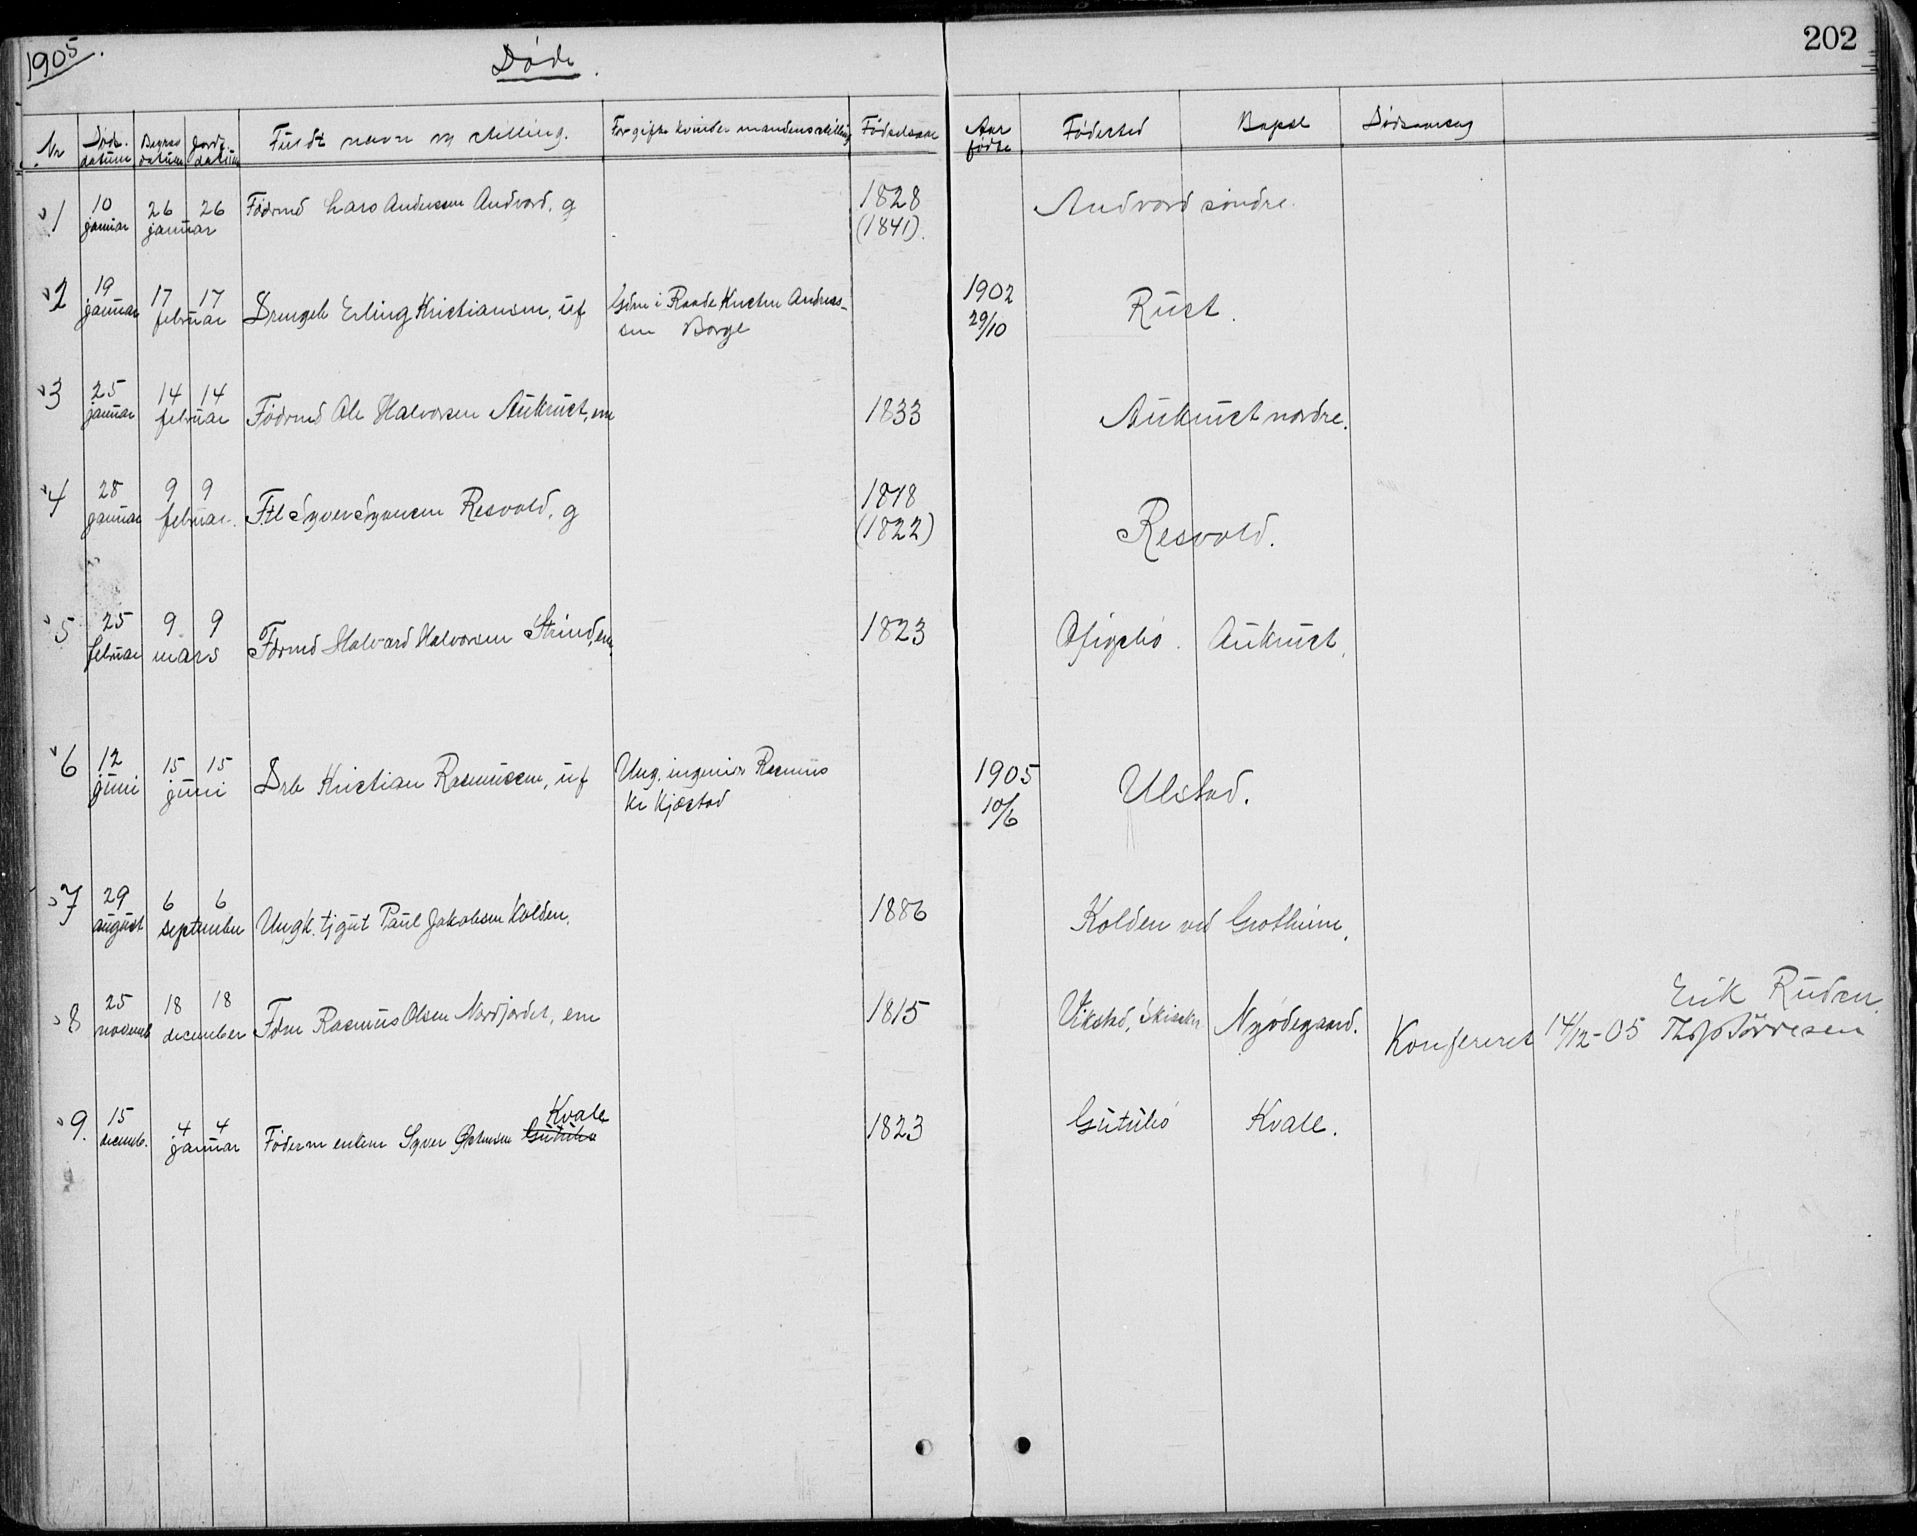 1905.
Døde.
202
Nr Døds-datum Begravdatum Jordf.datum Fuldt navn og stilling. For gifte kvinder mandens stilling Fødselsaar Aar fødte Fødested Bopæl Dødsaarsag
1 10 januar 26 26 januar Födermd Lars Andersen Andvord, g 1828 (1841). Andvord söndre.
2 19 januar 17 17 februar Drengeb Erling Kristiansen, uf Gdm i Raade Kristen Andreas-
sen Borge 1902 29/10 Rust.
3 25 januar 14 14 februar Födrmd Ole Halvorsen Aukrust, em 1833 Aukrust nordre.
4 28 januar 9 9 februar. Ftl Syver Syversen Resvold, g 1818 (1822) Resvold.
5 25 februar 9 9 mars Fdrmd Halvard Halvorsen Strind, em. 1823 Aukrust.
6 12 juni 15 15 juni Drb Kristian Rasmussen, uf Ung. ingeniør Rasmus
Kr Kjæstad 1905 10/6 Ulstad.
7 29 august 6 6 september Ungk. tjgut Paul Jakobsen Kolden. 1886 Kolden ved Grotheim.
8 25 novemb 18 18 december Fdm Rasmus Olsen Nordjordet, em 1815 Vikstad, Skiaker Nyödegaard.
Erik Ruden.
Konfereret 14/12-05 Ths Törresen
9. 15 decemb. 4 4 januar Föderm enkem Syver Østensen Gutubö Kvale 1823 Gutubö Kvale.